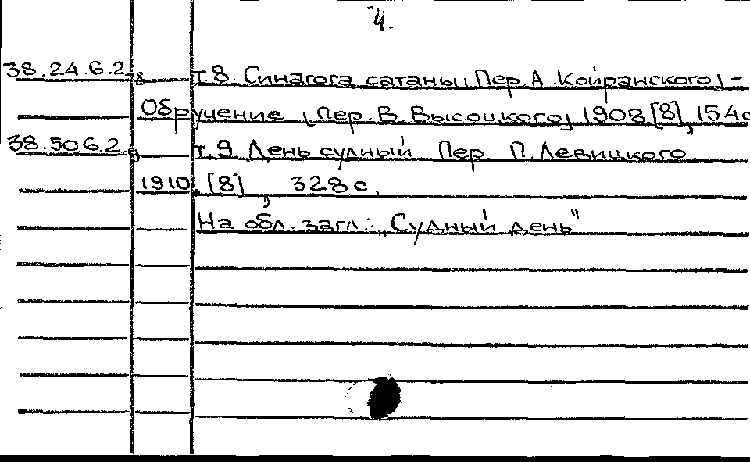 4.
38.24.6.2 т.8. Синагога сатаны [Пер. А. Койранского] -
Обручение [Пер. В. Высоцкого] 1908 [8], 154с
38.50.6.2 т.9. День судный Пер. П. Левицкого
1910, [8], 328 с.
На обл. загл.: „Судный день"